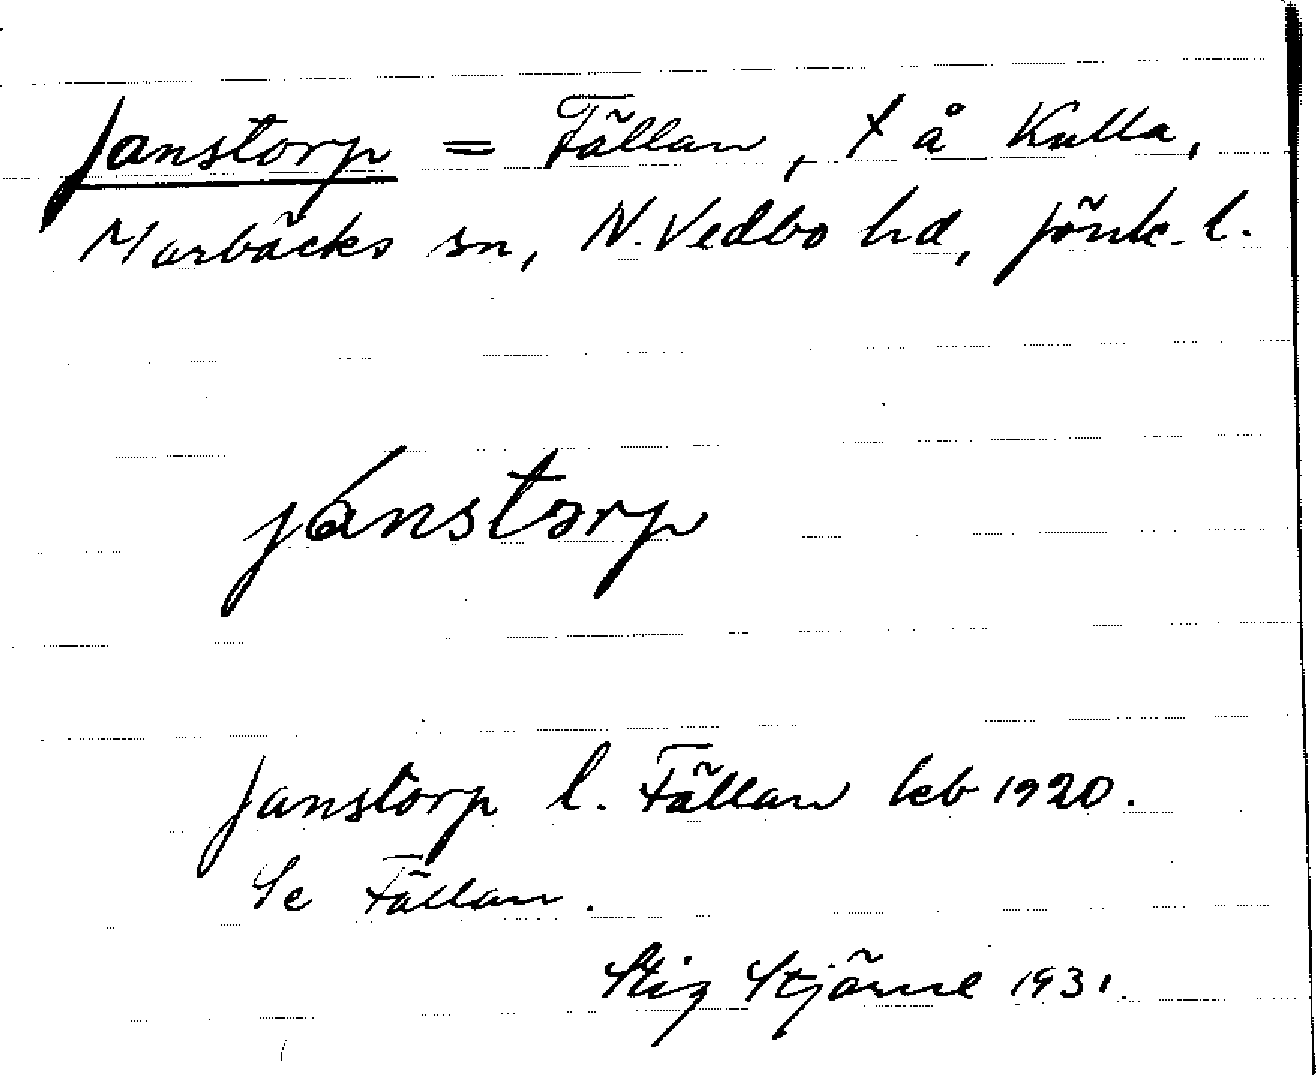 Janstorp = Fällan, t å Kulla,
Marbäcks sn, N. Vedbo hd, Jönk. l.
jánstorp
Janstorp l. Fällan kb 1920.
Se Fällan.
Stig Stjärne 1931.